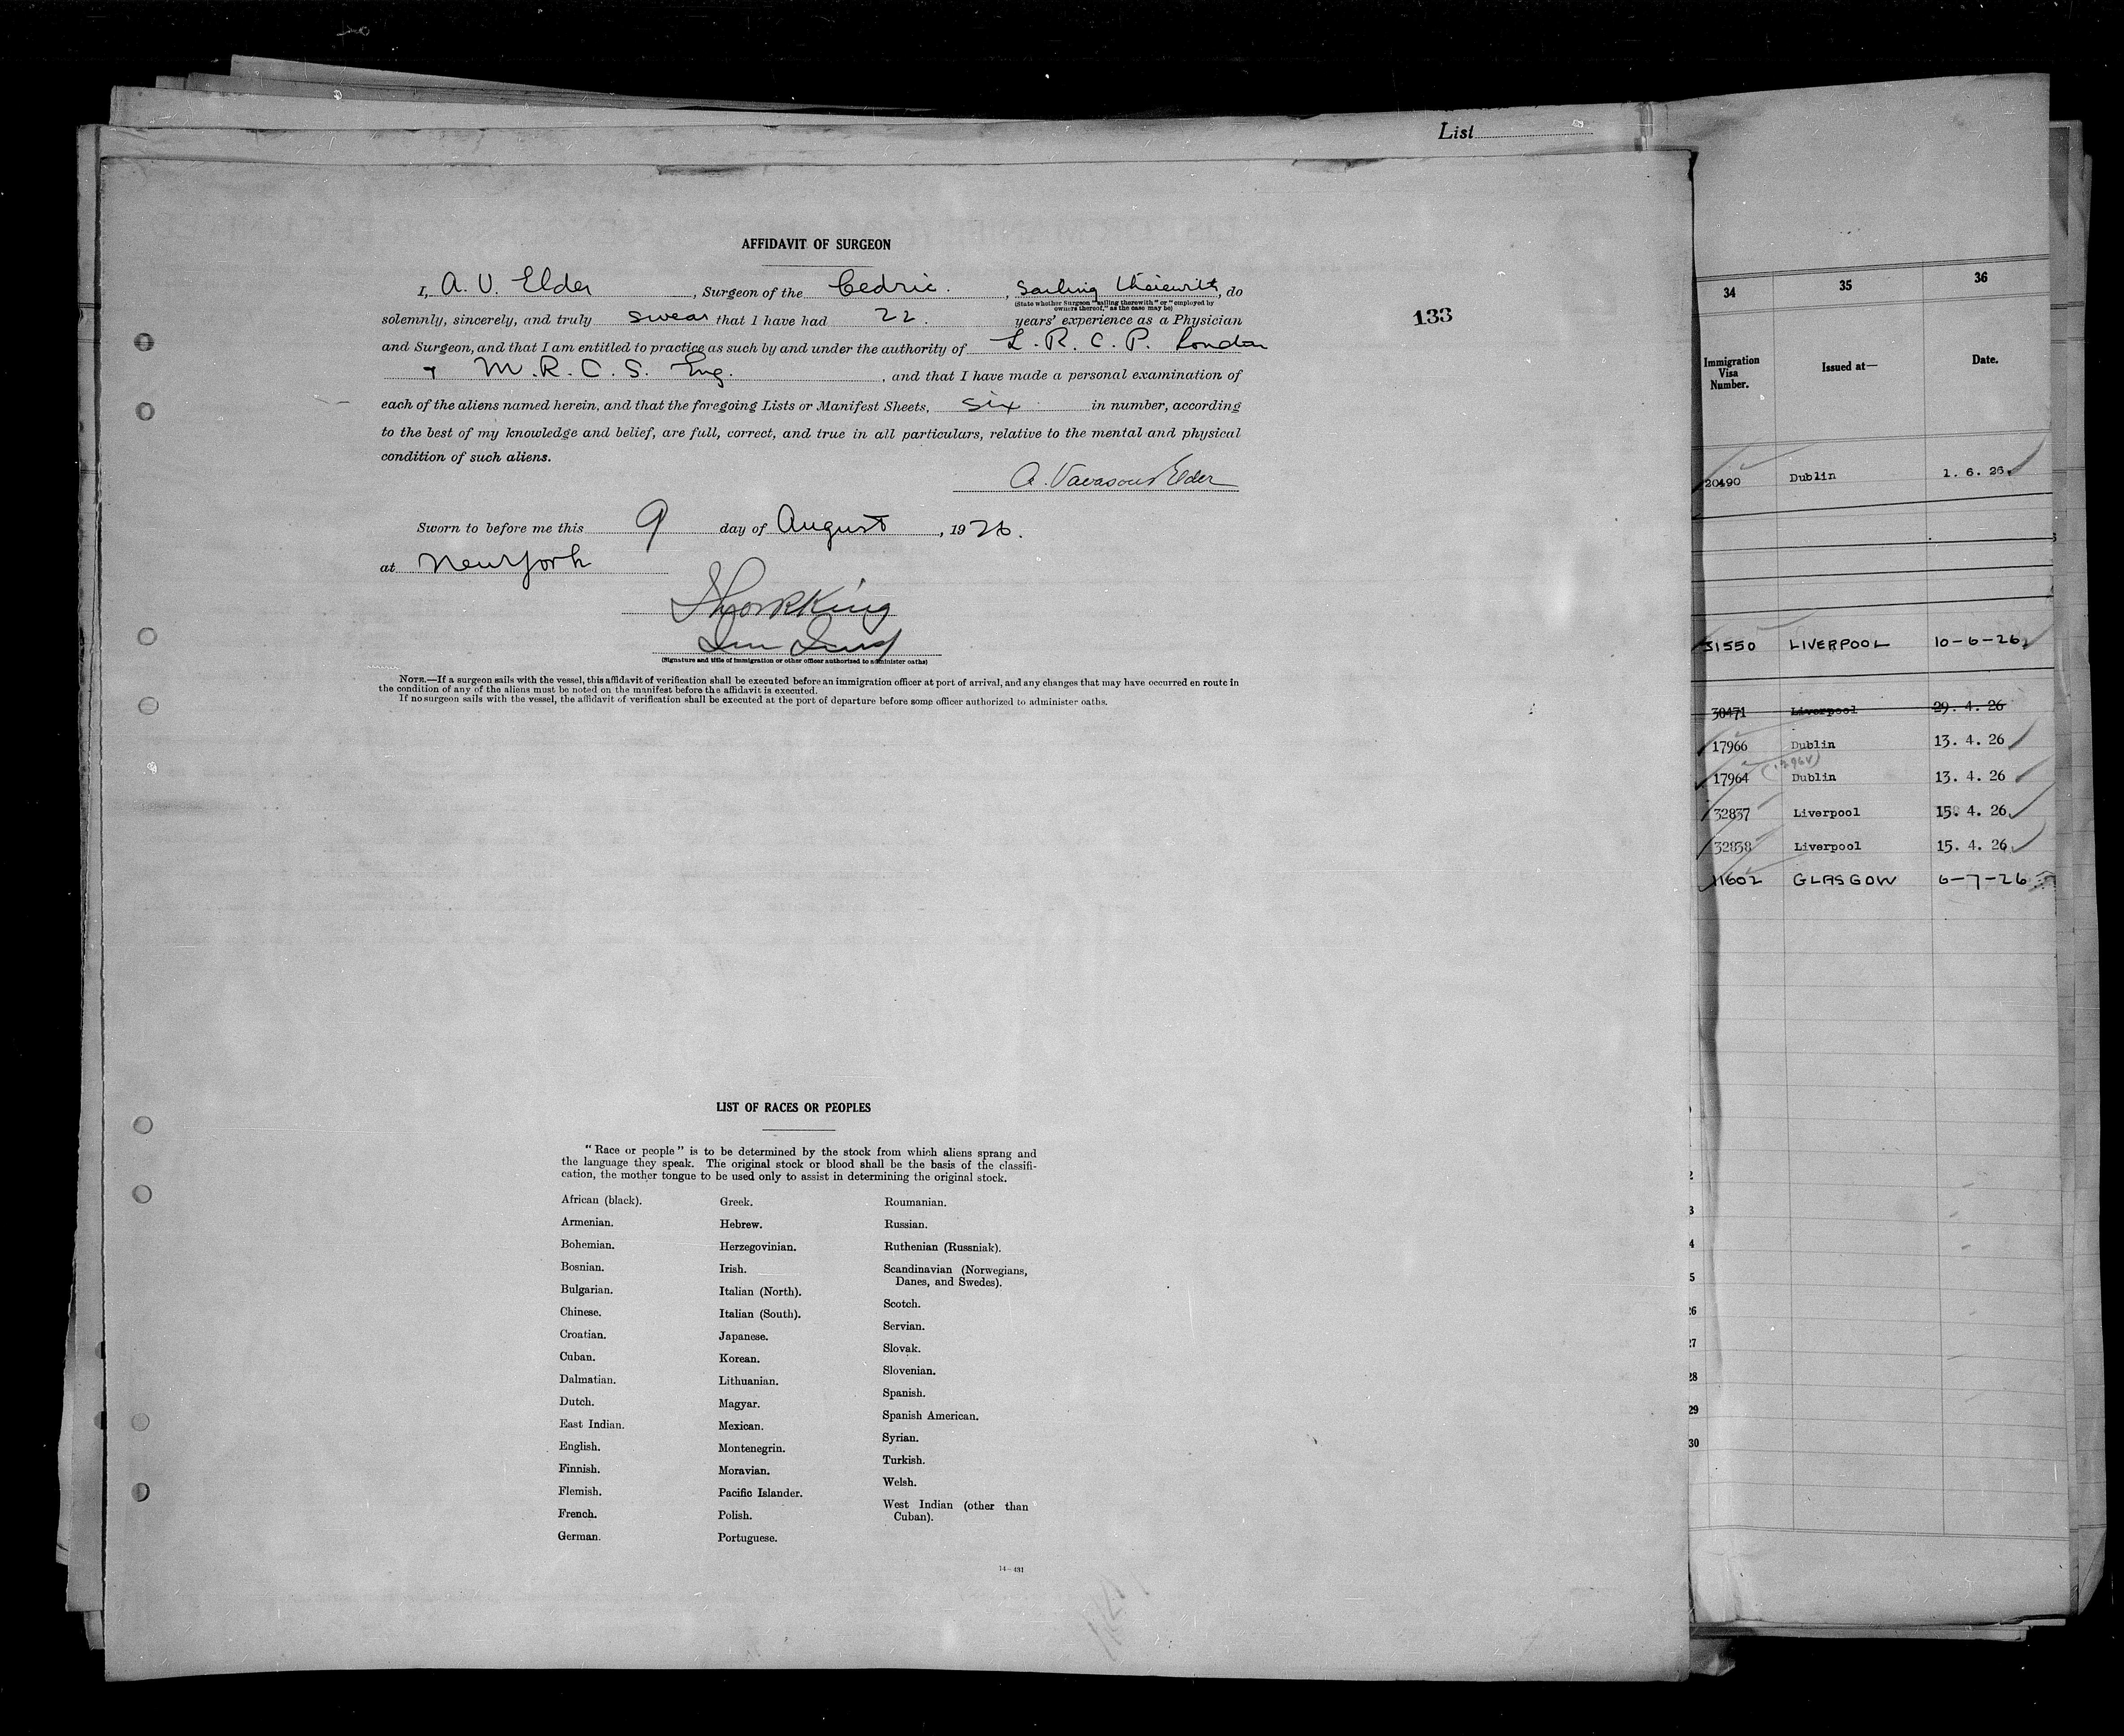 List
AFFIDAVIT OF SURGEON
I, A. V. Elder, Surgeon of the Cedric. , Sailing therewith, do
(State whether Surgeon "sailing therewith" or "employed by
owners thereof," as the case may be)
solemnly, sincerely, and truly swear that I have had 22. years' experience as a Physician
133
and Surgeon, and that I am entitled to practice as such by and under the authority of L. R. C. P. London
+ M. R. C. S. Eng. , and that I have made a personal examination of
each of the aliens named herein, and that the foregoing Lists or Manifest Sheets, six in number, according
to the best of my knowledge and belief, are full, correct, and true in all particulars, relative to the mental and physical
condition of such aliens.
A. Vavasour Elder
Sworn to before me this 9 day of August , 1926.
at New York
King
(Signature and title of immigration or other officer authorized to administer oaths)
NOTE.—If a surgeon sails with the vessel, this affidavit of verification shall be executed before an immigration officer at port of arrival, and any changes that may have occurred en route in
the condition of any of the aliens must be noted on the manifest before the affidavit is executed.
If no surgeon sails with the vessel, the affidavit of verification shall be executed at the port of departure before some officer authorized to administer oaths.
LIST OF RACES OR PEOPLES
"Race or people" is to be determined by the stock from which aliens sprang and
the language they speak. The original stock or blood shall be the basis of the classifi-
cation, the mother tongue to be used only to assist in determining the original stock.
African (black).
Armenian.
Bohemian.
Bosnian.
Bulgarian.
Chinese.
Croatian.
Cuban.
Dalmatian.
Dutch.
East Indian.
English.
Finnish.
Flemish.
French.
German.
Greek.
Hebrew.
Herzegovinian.
Irish.
Italian (North).
Italian (South).
Japanese.
Korean.
Lithuanian.
Magyar.
Mexican.
Montenegrin.
Moravian.
Pacific Islander.
Polish.
Portuguese.
Roumanian.
Russian.
Ruthenian (Russniak).
Scandinavian (Norwegians,
Danes, and Swedes).
Scotch.
Servian.
Slovak.
Slovenian.
Spanish.
Spanish American.
Syrian.
Turkish.
Welsh.
West Indian (other than
Cuban).
14—431
34 35 36
Immigration
Visa
Number.
Issued at—
Date.
20490 Dublin 1. 6. 26.
31550 LIVERPOOL 10-6-26
30471 Liverpool 29. 4. 26
17966 Dublin 13. 4. 26
17964 Dublin 13. 4. 26
32837 Liverpool 15. 4. 26
32838 Liverpool 15. 4. 26
11602 GLASGOW 6-7-26
2
3
4
5
26
27
28
29
30